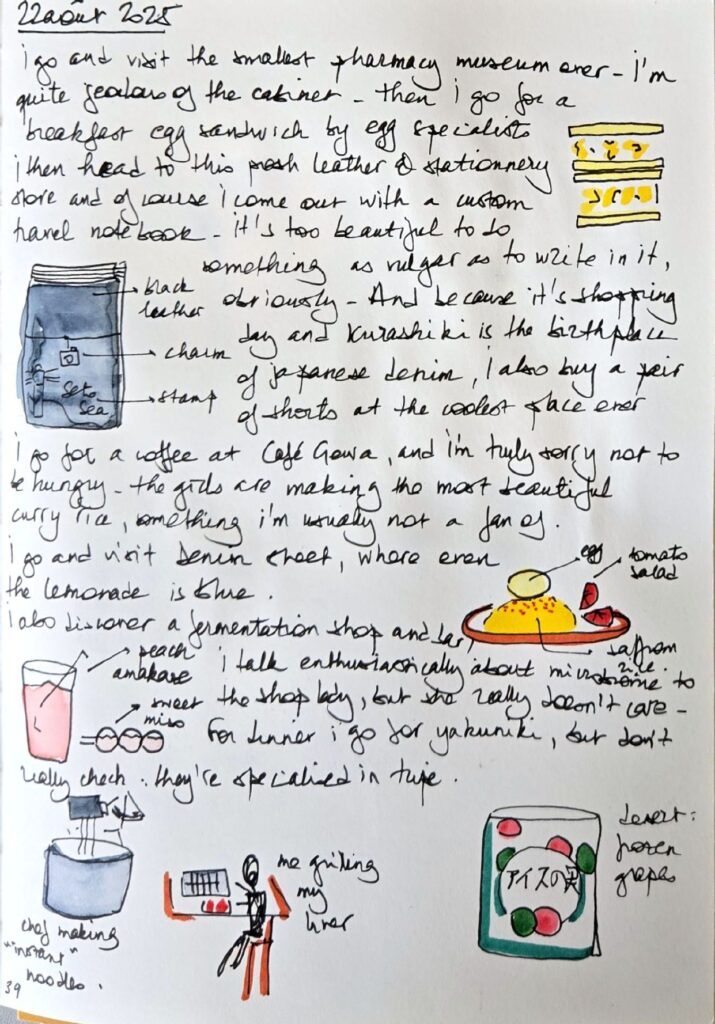 22 août 2025
i go and visit the smallest pharmacy museum ever - i'm
quite jealous of the cabinet - then i go for a
breakfast egg sandwich by egg specialists
i then head to this posh leather & stationnery
store and of course i come out with a custom
travel notebook - it's too beautiful to do
something as vulgar as to write in it,
obviously - And because it's shopping
day and Kurashiki is the birthplace
of japanese denim, i also buy a pair
of shorts at the coolest place ever
black
leather
charm
stamp
Seto
Sea
i go for a coffee at Café Gewa, and i'm truly sorry not to
be hungry - the girls are making the most beautiful
curry rice, something i'm usually not a fan of.
i go and visit Denim street, where even
the lemonade is blue.
egg
tomato
salad
saffron
rice.
i also discover a fermentation shop and bar,
i talk enthusiastically about microbiome to
the shop lady, but she really doesn't care -
For dinner i go for yakuniki, but don't
really check : they're specialised in tripe.
peach
amakase
sweet
miso
chef making
"instant"
noodles.
me grilling
my
liver
アイスの実
desert :
frozen
grapes
39